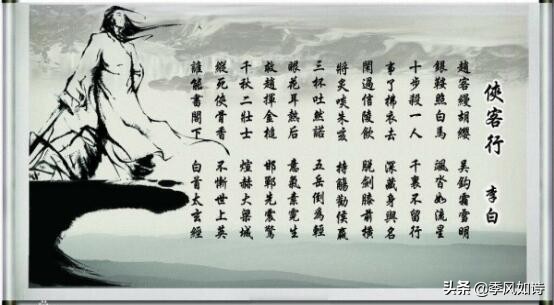 俠客行 李白
趙客縵胡纓 吳鈎霜雪明
銀鞍照白馬 颯沓如流星
十步殺一人 千裏不留行
事了拂衣去 深藏身與名
閑過信陵飲 脫劍膝前橫
將炙啖朱亥 持觴勸侯嬴
三杯吐然諾 五岳倒為輕
眼花耳熱后 意氣素霓生
救趙揮金槌 邯鄲先震驚
千秋二壯士 煊赫大梁城
縱死俠骨香 不慚世上英
誰能書閣下 白首太玄經
头条 @季风如诗